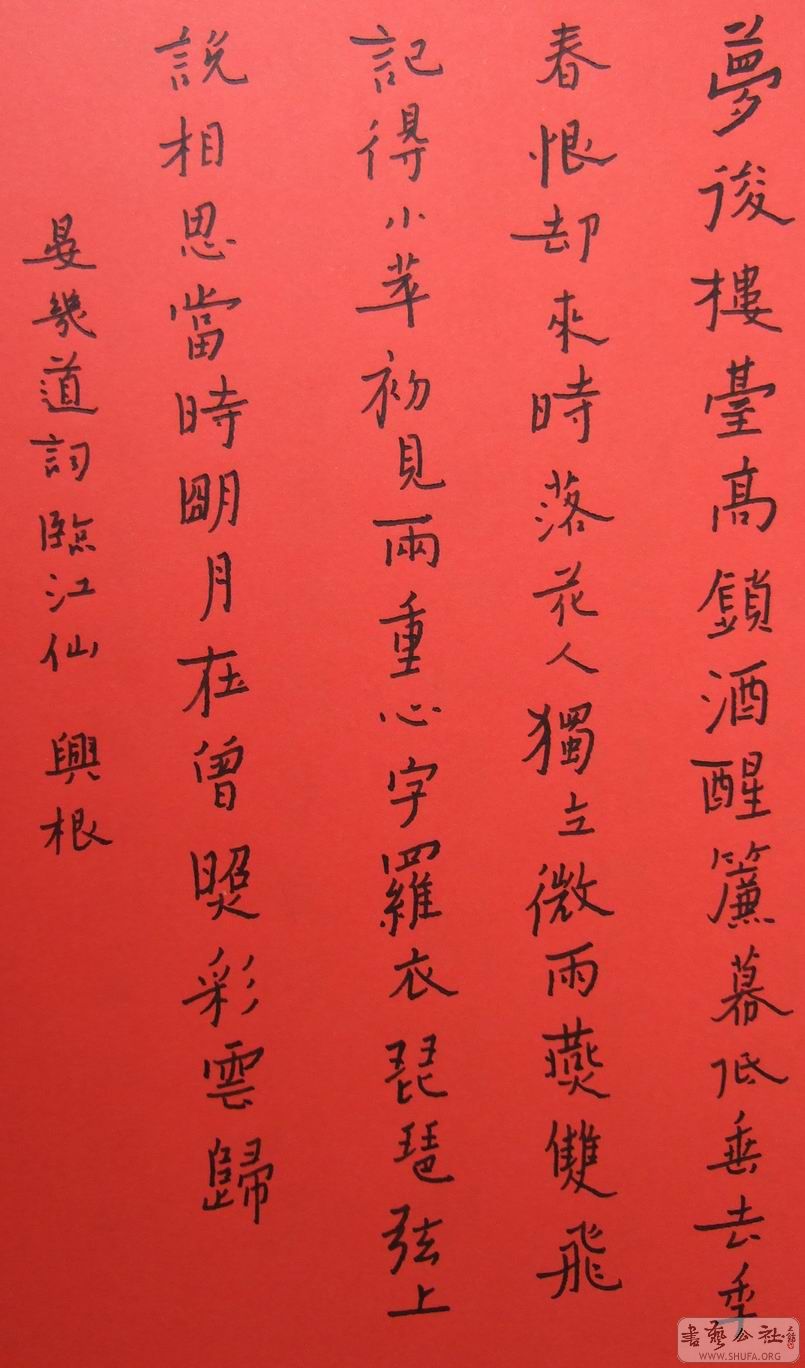 夢後樓臺高鎖酒醒簾幕低垂去年
春恨却來時落花人獨立微雨燕雙飛
記得小苹初見兩重心字羅衣琵琶弦上
說相思當時明月在曾照彩雲歸
晏幾道詞臨江仙 興根
書藝公社
WWW.SHUFA.ORG